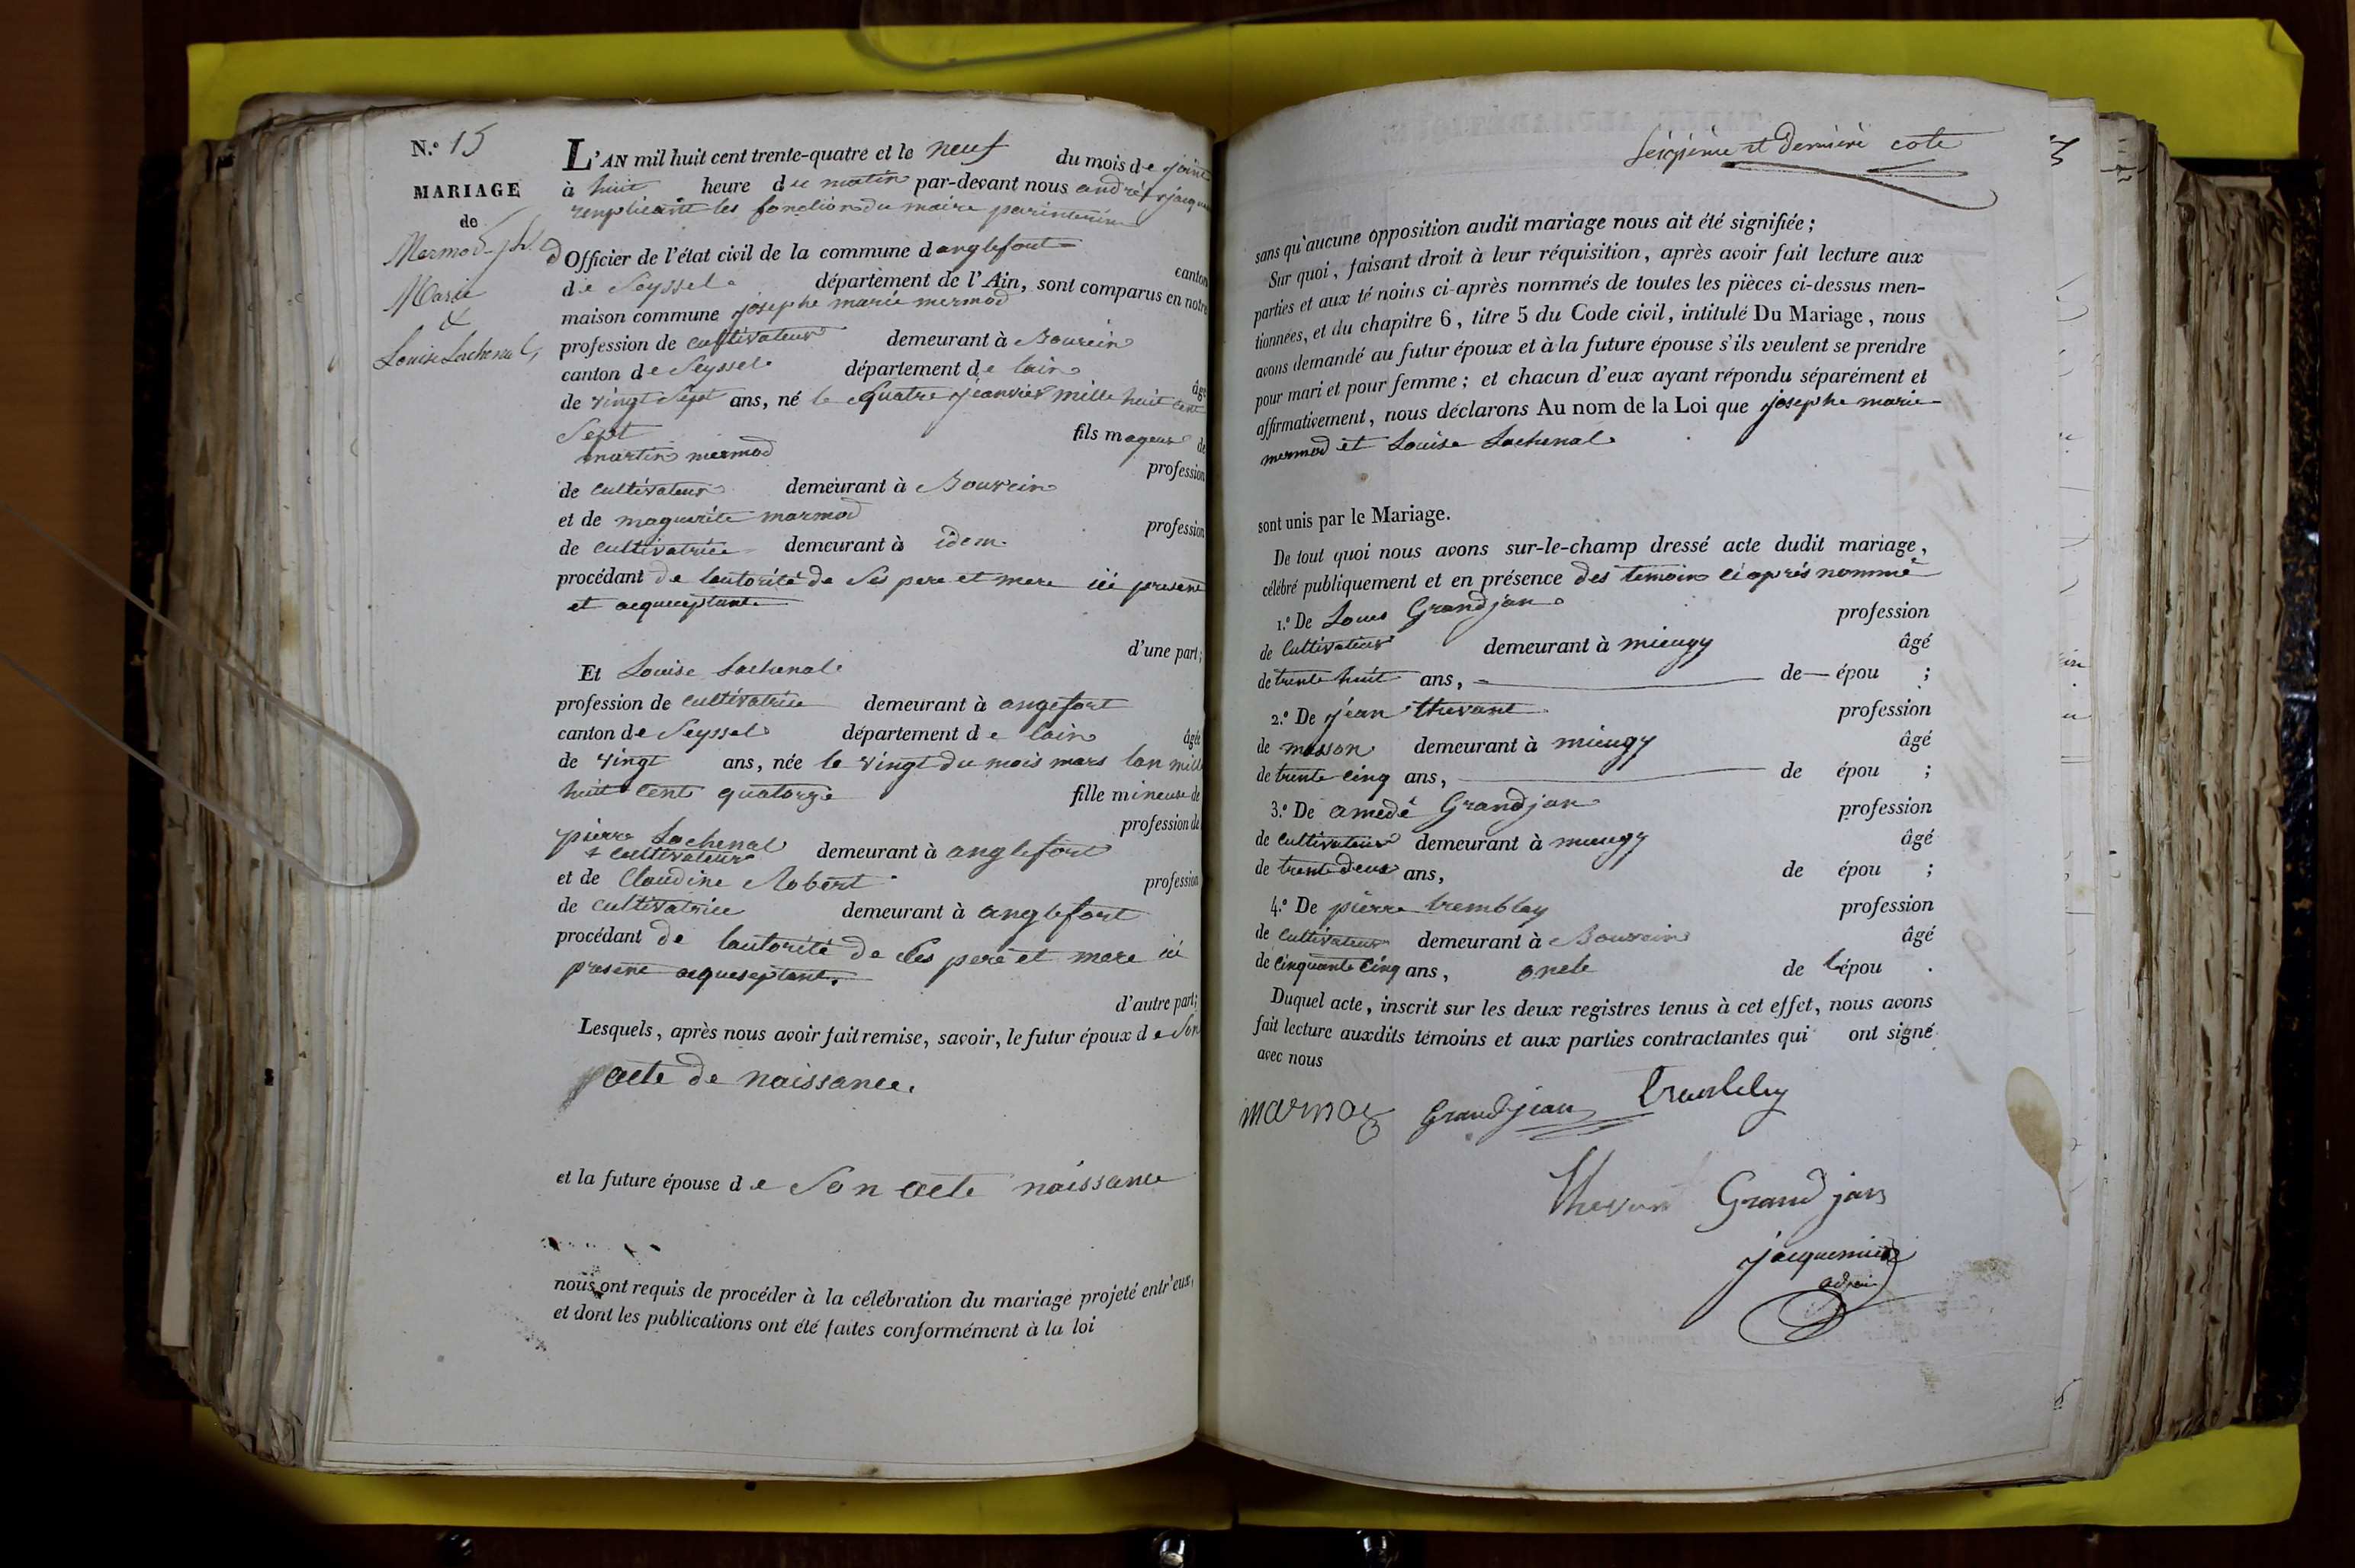 N.º 15
MARIAGE
de
Mermod jph.
Marie
&
Louise Lachenal
L'AN mil huit cent trente-quatre et le neuf du mois de
à huit heure du matin par-devant nous andré jacque
remplissant les fonction du maire parinterim
Officier de l'état civil de la commune d anglefort canton
de Seyssel département de l'Ain, sont comparus en notre
maison commune josephe marie mermod
profession de cultivateur demeurant à
canton de Seyssel département de lain âgé
de vingt Sept ans, né le quatre janvier mille huit cent
Sept fils mageur de
martin mermod profession
de cultivateur demeurant à
et de maguerite marmod profession
de cultivatrice demeurant à idem
procédant de lautorité de Ses pere et mere ici present
et acqueceptant
d'une part;
Et Louise Lachenal
profession de cultivatrice demeurant à angefort
canton de Seyssel département de lain âgée
de vingt ans, née le vingt du mois mars lan mille
huit cent quatorze fille mineuse de
pierre Lachenal profession de
cultivateur demeurant à anglefort
et de Claudine Robert profession
de cultivatrice demeurant à anglefort
procédant de lautorité de Ses pere et mere ici
present acqueseptant.
d'autre part;
Lesquels, après nous avoir fait remise, savoir, le futur époux de Son
acte de naissance.
et la future épouse de Son acte naissance
nous ont requis de procéder à la célébration du mariage projeté entr'eux,
et dont les publications ont été faites conformément à la loi
Seizième et dernière cote
sans qu'aucune opposition audit mariage nous ait été signifiée;
Sur quoi, faisant droit à leur réquisition, après avoir fait lecture aux
parties et aux té noins ci-après nommés de toutes les pièces ci-dessus men-
tionnées, et du chapitre 6, titre 5 du Code civil, intitulé Du Mariage, nous
avons demandé au futur époux et à la future épouse s'ils veulent se prendre
pour mari et pour femme; et chacun d'eux ayant répondu séparément et
affirmativement, nous déclarons Au nom de la Loi que josephe marie
mermod et Louise Lachenal
sont unis par le Mariage.
De tout quoi nous avons sur-le-champ dressé acte dudit mariage,
célébré publiquement et en présence des temoin ciaprés nommé
1.º De Loues Grandjan profession
de Cultivateur demeurant à mieugy âgé
de trente huit ans, de — épou ;
2.º De jean thevant profession
de masson demeurant à mieugy âgé
de trente cinq ans, de épou ;
3.º De amedé Grandjan profession
de cultivateur demeurant à mieugy âgé
de trente deux ans, de épou ;
4.º De pierre tremblay profession
de cultivateur demeurant à âgé
de cinquante cinq ans, oncle de l'épou .
Duquel acte, inscrit sur les deux registres tenus à cet effet, nous avons
fait lecture auxdits témoins et aux parties contractantes qui ont signé
avec nous
marmod Grandjean
Thevan Grandjan
jacquemier
adjoin